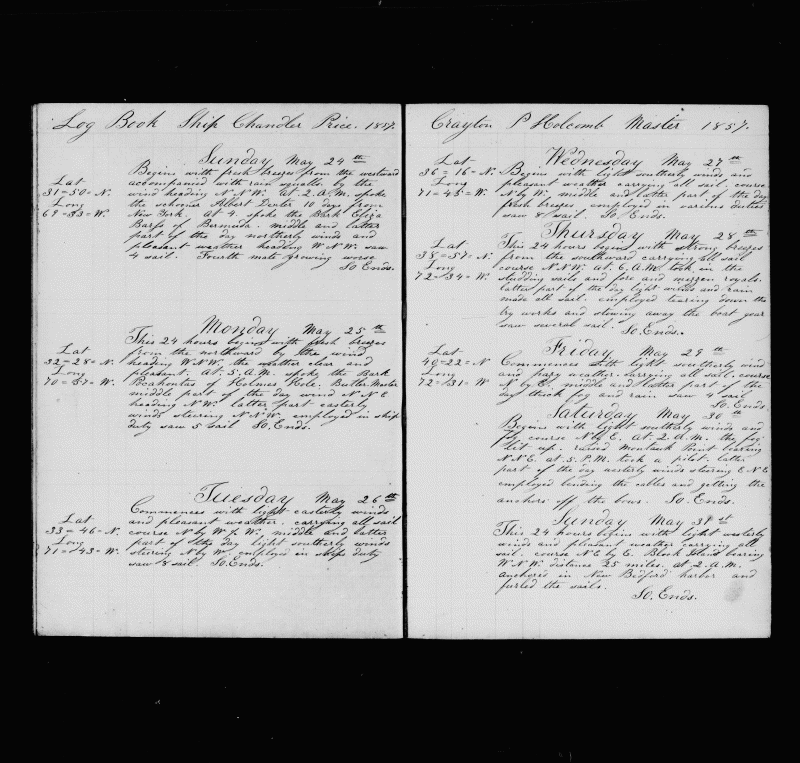 Log Book Ship Chandler Price. 1857.
Sunday May 24th
Begins with fresh breezes from the westward
accompanied with rain squalls by the
Lat
31=50=N.
Long
69=33=W.
wind heading N.N.W. At 2.A.M. spoke
the schooner Albert Dexter 10 days from
New York. At 4. spoke the Bark Eliza
Barss of Bermuda. middle and latter
part of the day northerly winds and
pleasant weather heading W N W. saw
4 sail. Fourth mate growing worse
So Ends.
Monday May 25th
This 24 hours begins with fresh breezes
from the northward by the wind
Lat
32=28=N.
Long
70=57=W.
heading W.N.W. the weather clear and
pleasant. At. 5. A.M. spoke the Bark
Pcahontas of Holmes Hole. Butler. Master
middle part of the day wind N N E
heading N.W. latter part easterly
winds steering N N W. employed in ship
duty saw 5 sail So. Ends.
Tuesday May 26th
Commences with light easterly winds
and pleasant weather. carrying all sail
Lat
33=46=N.
Long
71=43=W.
course N by W ½ W. middle and latter
part of the day light southerly winds
steering N by W. employed in ships duty
saw 8 sail So. Ends.
Crayton P Holcomb Master 1857.
Wednesday May 27th
Lat
36=16=N.
Long
71=45=W.
Begins with light southerly winds and
pleasant weather carrying all sail. course
N by W. middle and latter part of the day
fresh breezes employed in various duties
saw 8 sail. So. Ends.
Thursday May 28th
Lat
38=57=N.
Long
72=34=W.
This 24 hours begins with strong breezes
from the southward carrying all sail
course N.N.W. At. 6. A.M. took in the
studding sails and fore and mizzen royals.
latter part of the day light winds and rain
made all sail. employed tearing down the
try works and stowing away the boat gear
saw several sail. So. Ends..
Friday May 29th
Lat
40=22=N
Long
72=31=W.
Commences with light southerly wind
and weather carrying all sail. course
N by E. middle and latter part of the
day thick fog and rain saw 4 sail
So. Ends.
Saturday May 30th
Begins with light southerly winds and
fog course N by E. At. 2. A.M. the fog
lit up. raised Montauk Point bearing
N N E. at. 5. P.M. took a pilot. latter
part of the day westerly winds steering E N E
employed bending the cables and getting the
anchors off the bows. So. Ends.
Sunday May 31st
This 24 hours begins with light westerly
winds and pleasant weather carrying all
sail. course N E by E. Block Island bearing
W N W. distance 25 miles. at. 2. A.M.
anchored in New Bedford harbor and
furled the sails.
So. Ends.